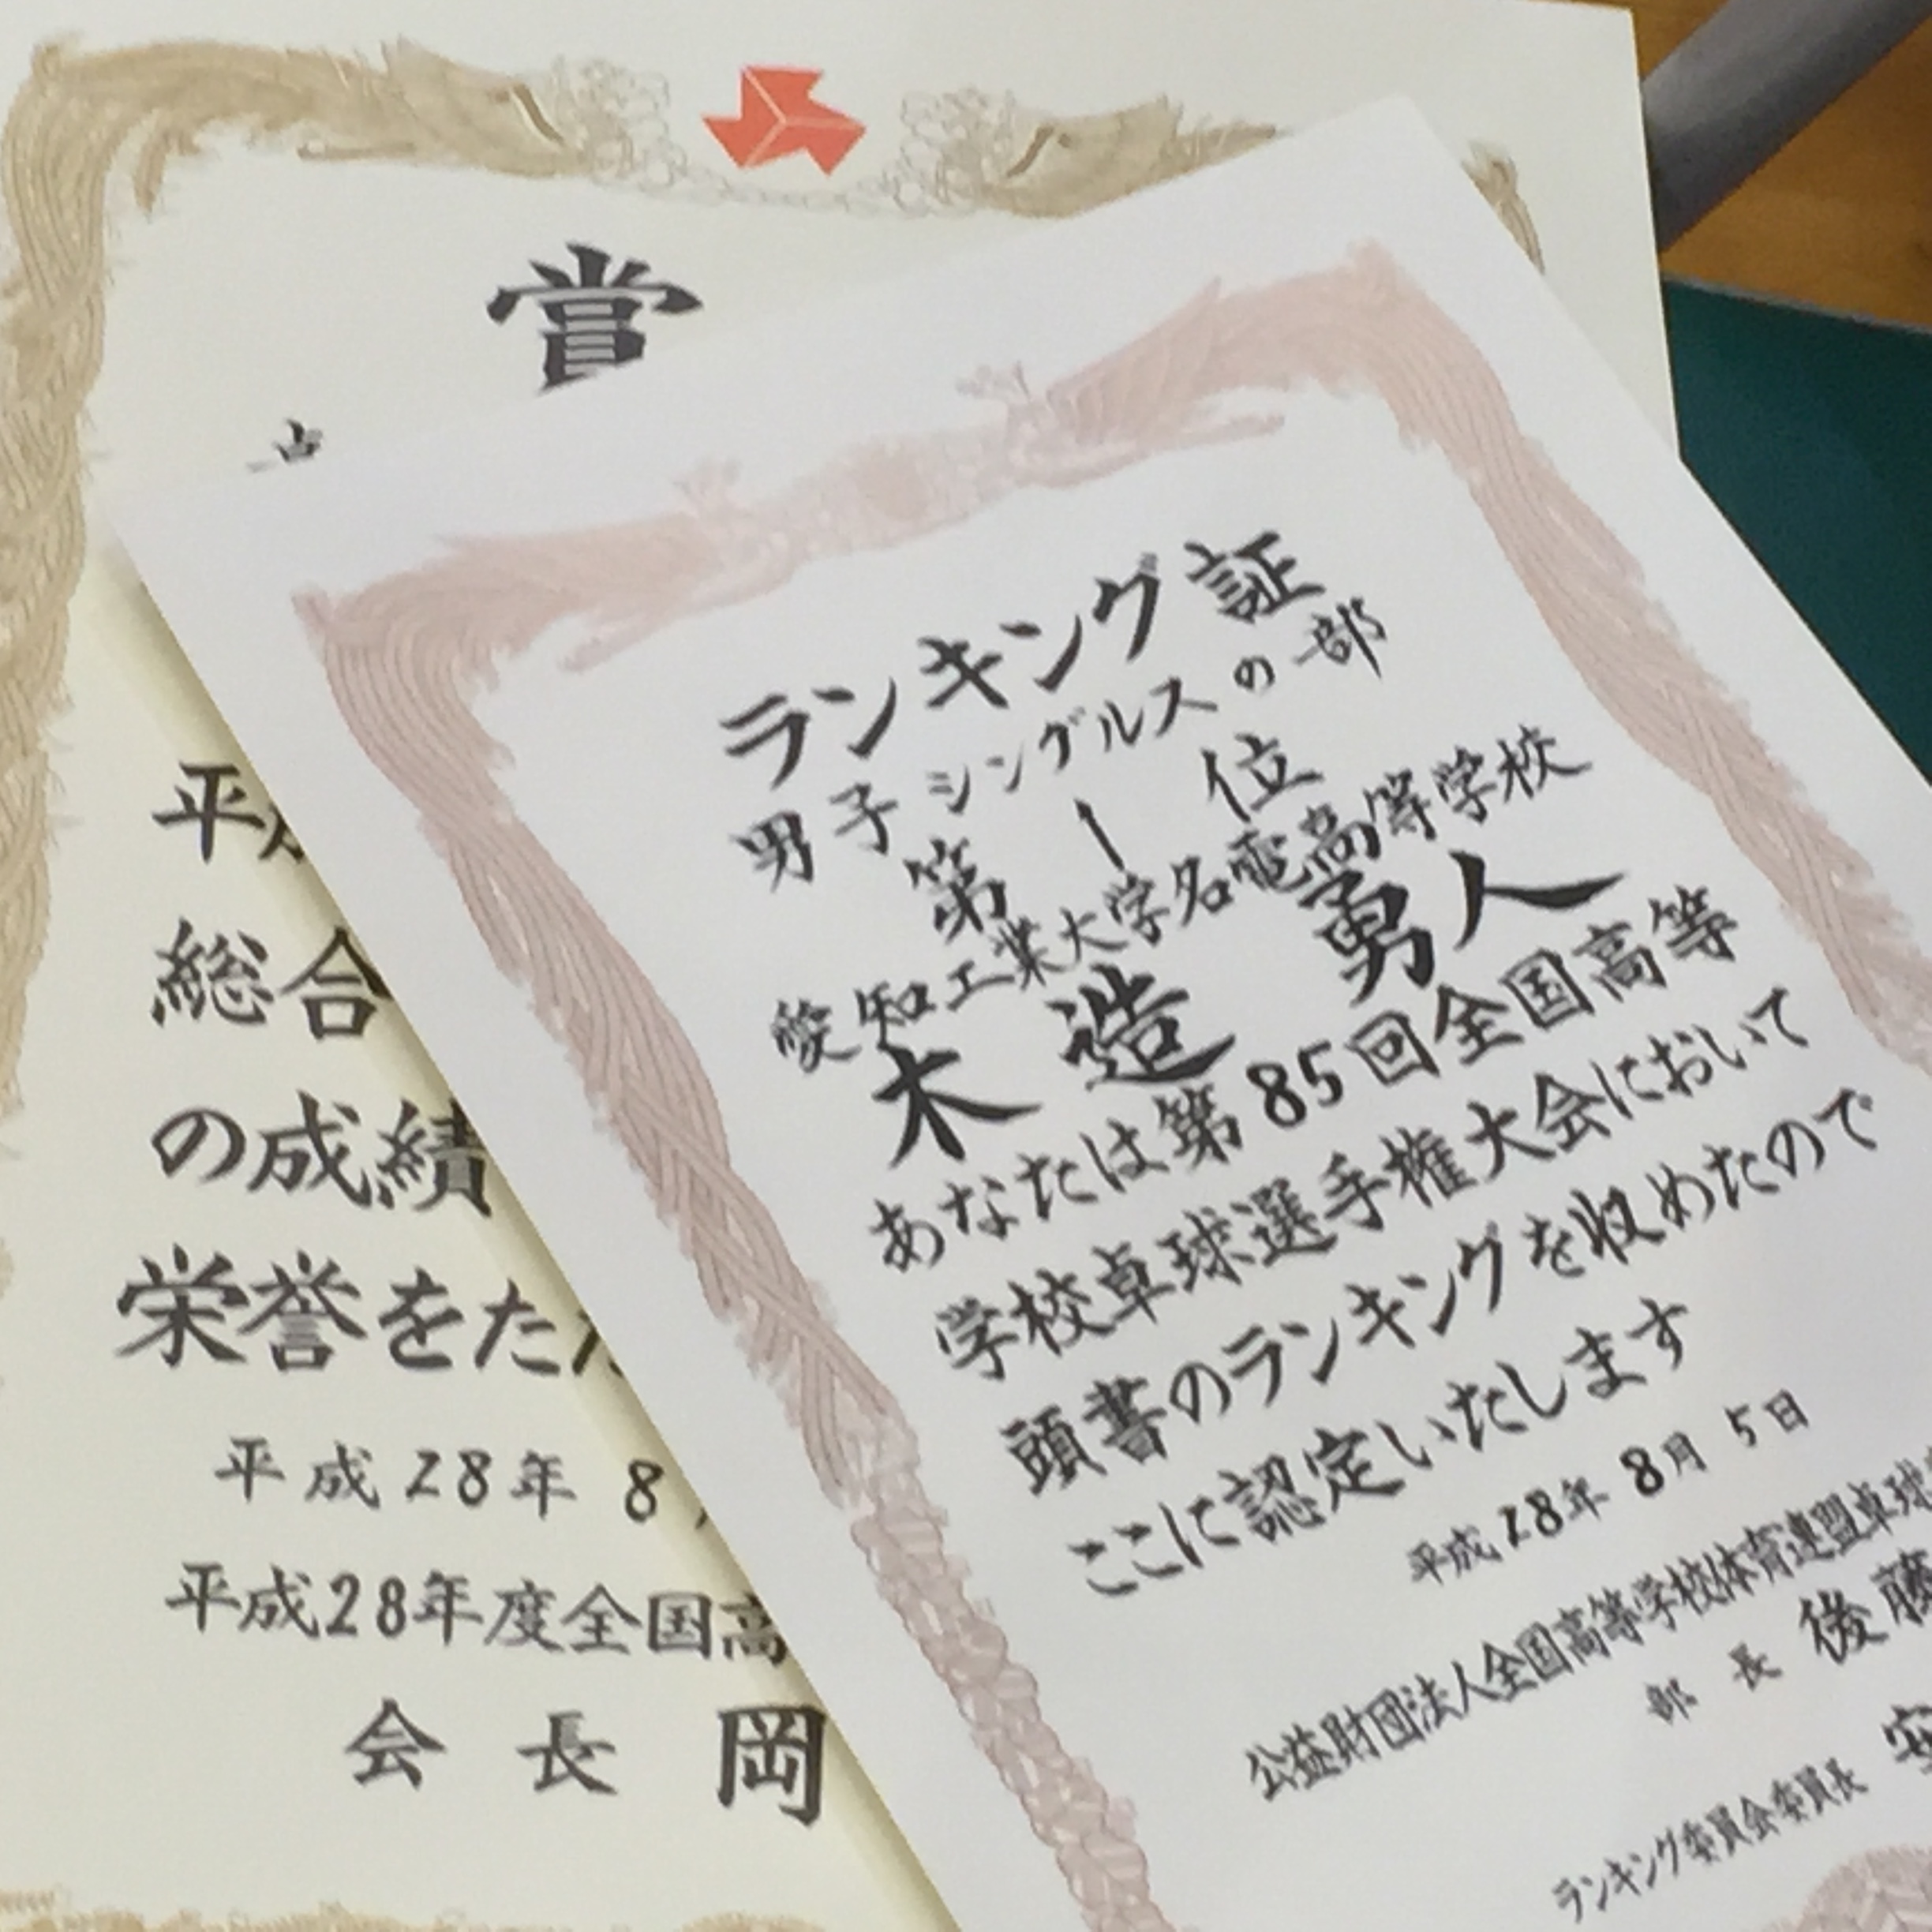 賞
平成
総合
の成績
栄誉をた
平成28年 8
平成28年度全国高
会長 岡
ランキング証
男子シングルスの部
第 1 位
愛知工業大学名電高等学校
木造 勇人
あなたは第85回全国高等
学校卓球選手権大会において
頭書のランキングを収めたので
ここに認定いたします
平成28年 8月 5日
公益財団法人全国高等学校体育連盟卓球
部長 後藤
ランキング委員会委員長 安